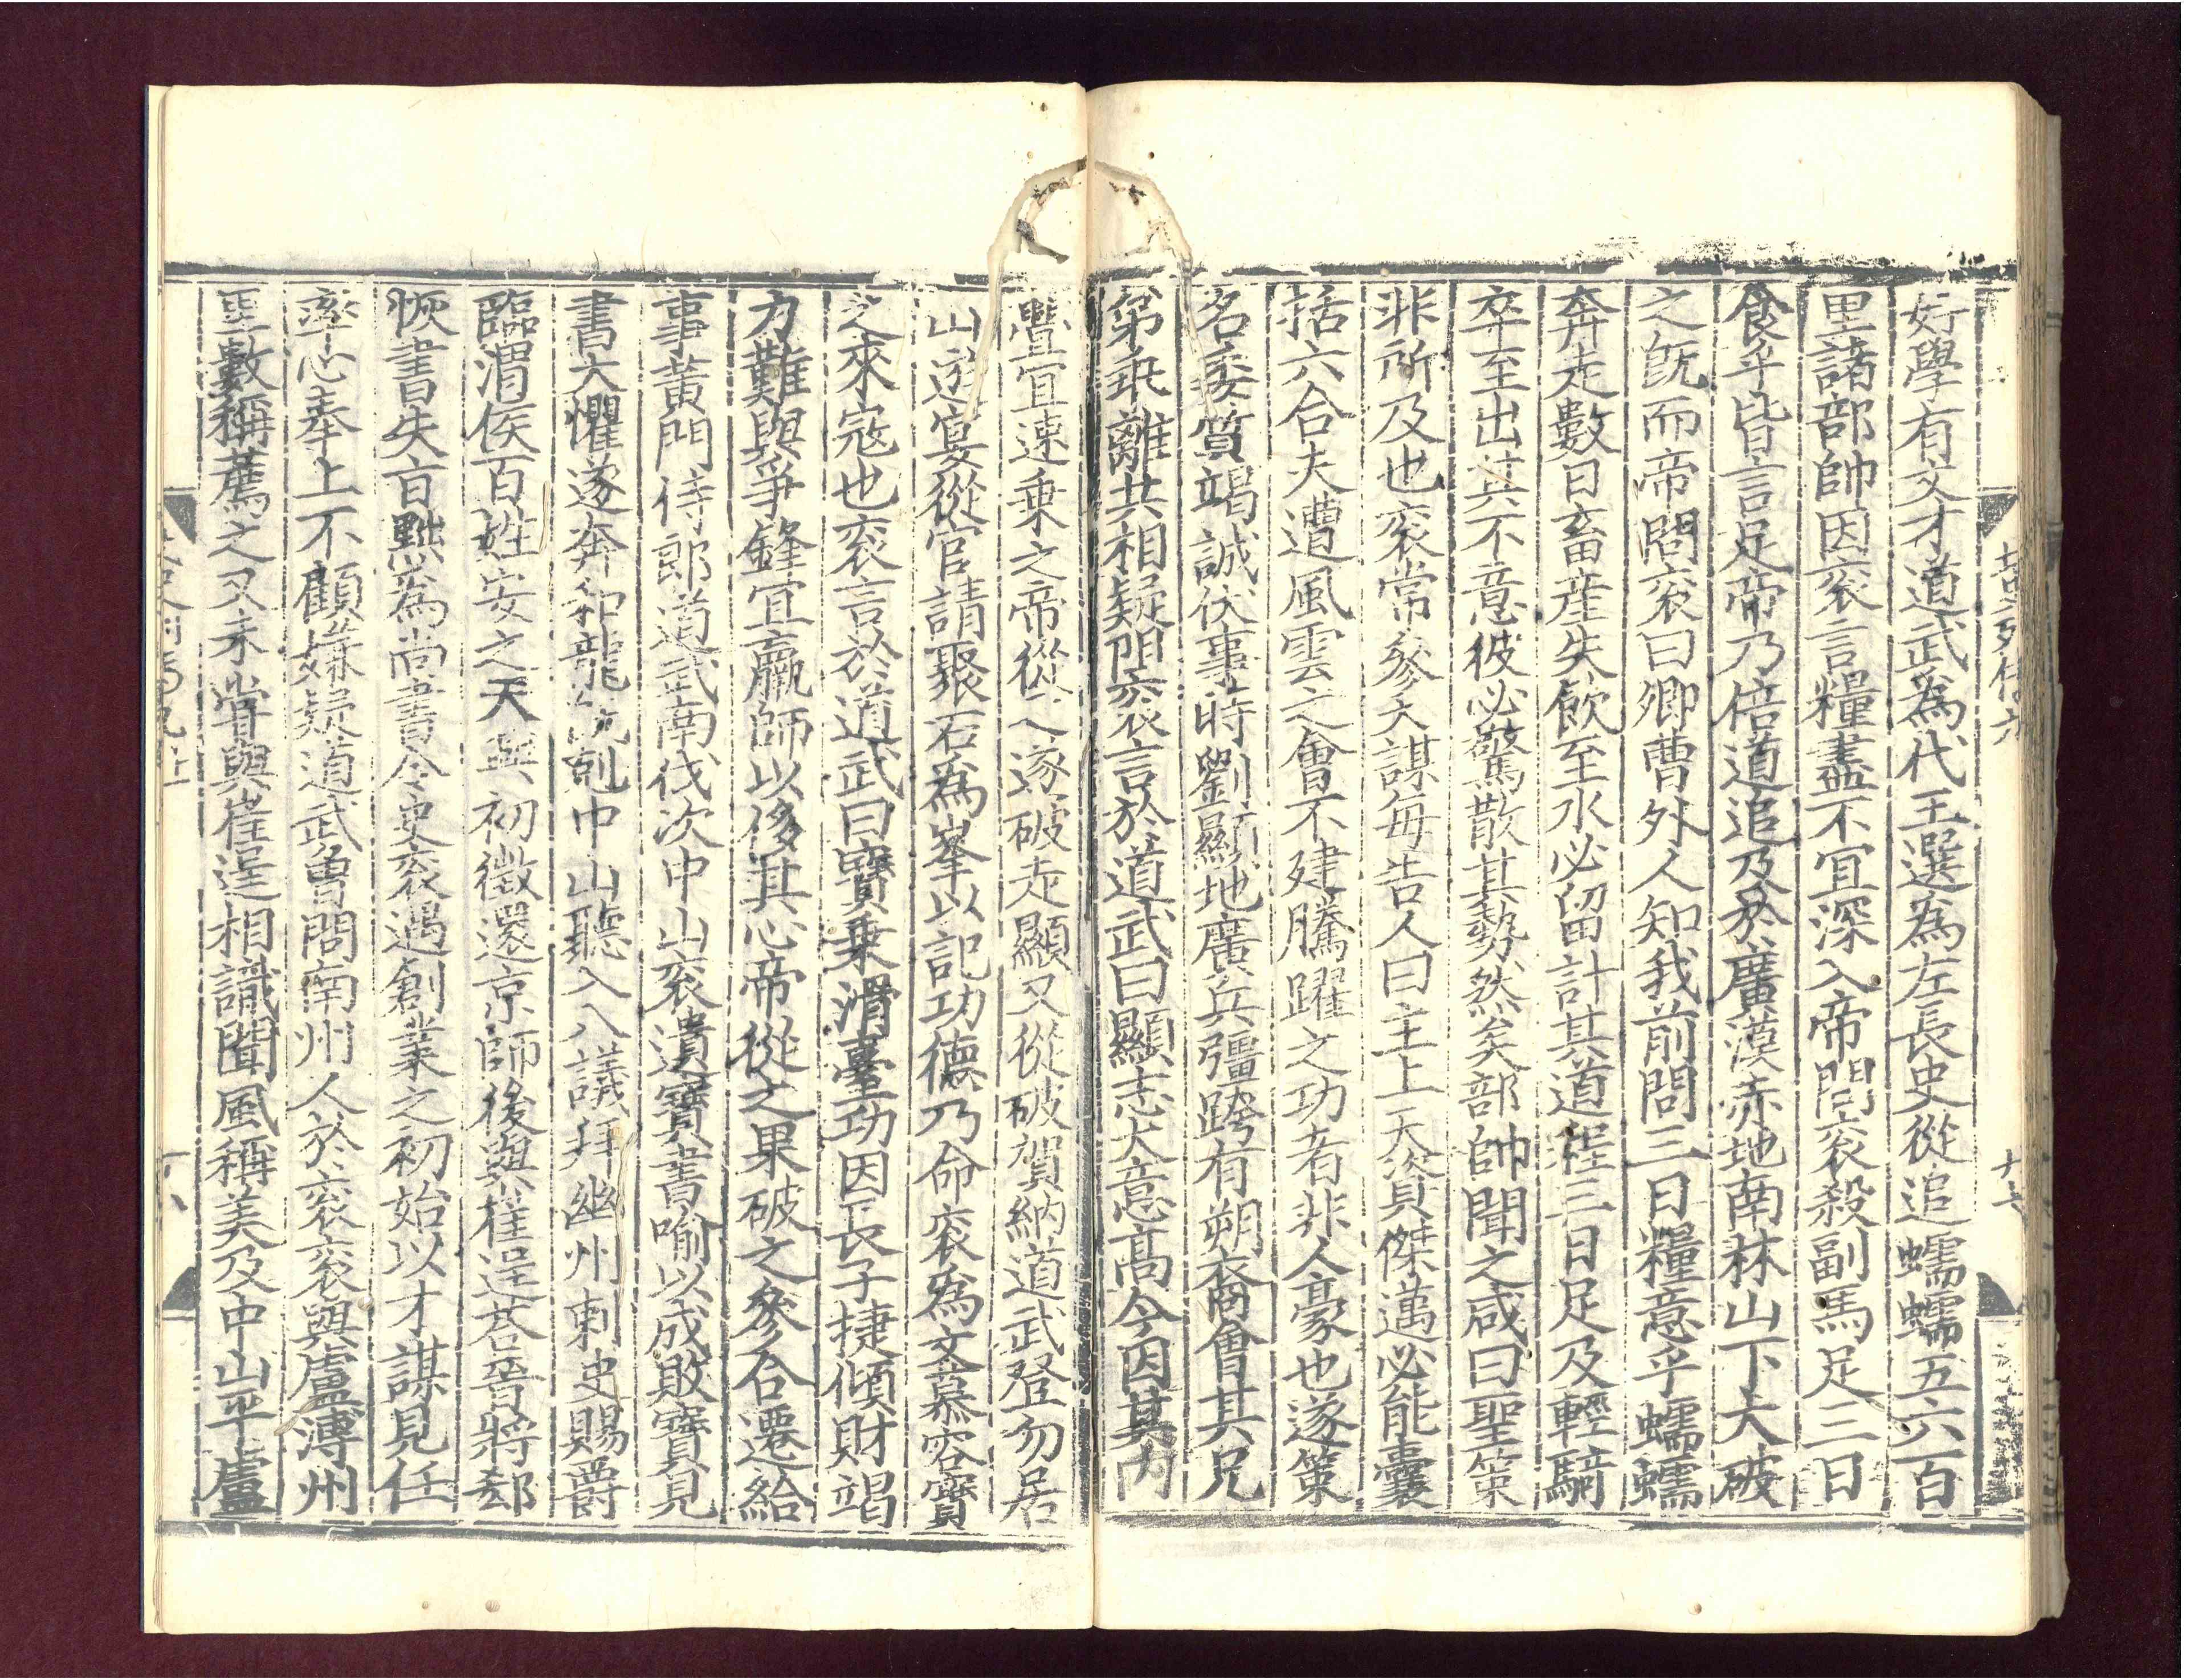 好學有文才道武爲代王選爲左長史從追蠕蠕五六百
里諸部帥因衮言糧盡不宜深入帝問衮殺副馬足三日
食乎皆言足帝乃倍道追及於廣漠赤地南林山下大破
之旣而帝問衮曰卿曹外人知我前問三日糧意乎蠕蠕
奔走數日畜産失飮至水必留計其道程三日足及輕騎
卒至出其不意彼必驚散其勢然矣部帥聞之咸曰聖策
非所及也衮常參大謀每告人曰主上天資傑邁必能囊
括六合夫遭風雲之會不建騰躍之功者非人豪也遂策
名委質竭誠伏事時劉顯地廣兵彊跨有朔裔會其兄
弟乖離共相疑阻衮言於道武曰顯志大意高今因其內
舋宜速乗之帝從之遂破走顯又從破賀納道武登勿居
山遊宴從官請聚石爲峯以記功德乃命衮爲文慕容寶
之來寇也衮言於道武曰寶乗滑臺功因長子捷傾財竭
力難與爭鋒宜羸師以侈其心帝從之果破之參合遷給
事黃門侍郎道武南伐次中山衮遺寶書喻以成敗寶見
書大懼遂奔和龍旣剋中山聽入八議拜幽州刺史賜爵
臨渭侯百姓安之天興初徵還京師後與崔逞荅晉將郄
恢書失旨黜爲尚書令史衮遇創業之初始以才謀見任
率心奉上不顧嫌疑道武曾問南州人於衮衮與盧溥州
里數稱薦之又未嘗與崔逞相識聞風稱美及中山平盧